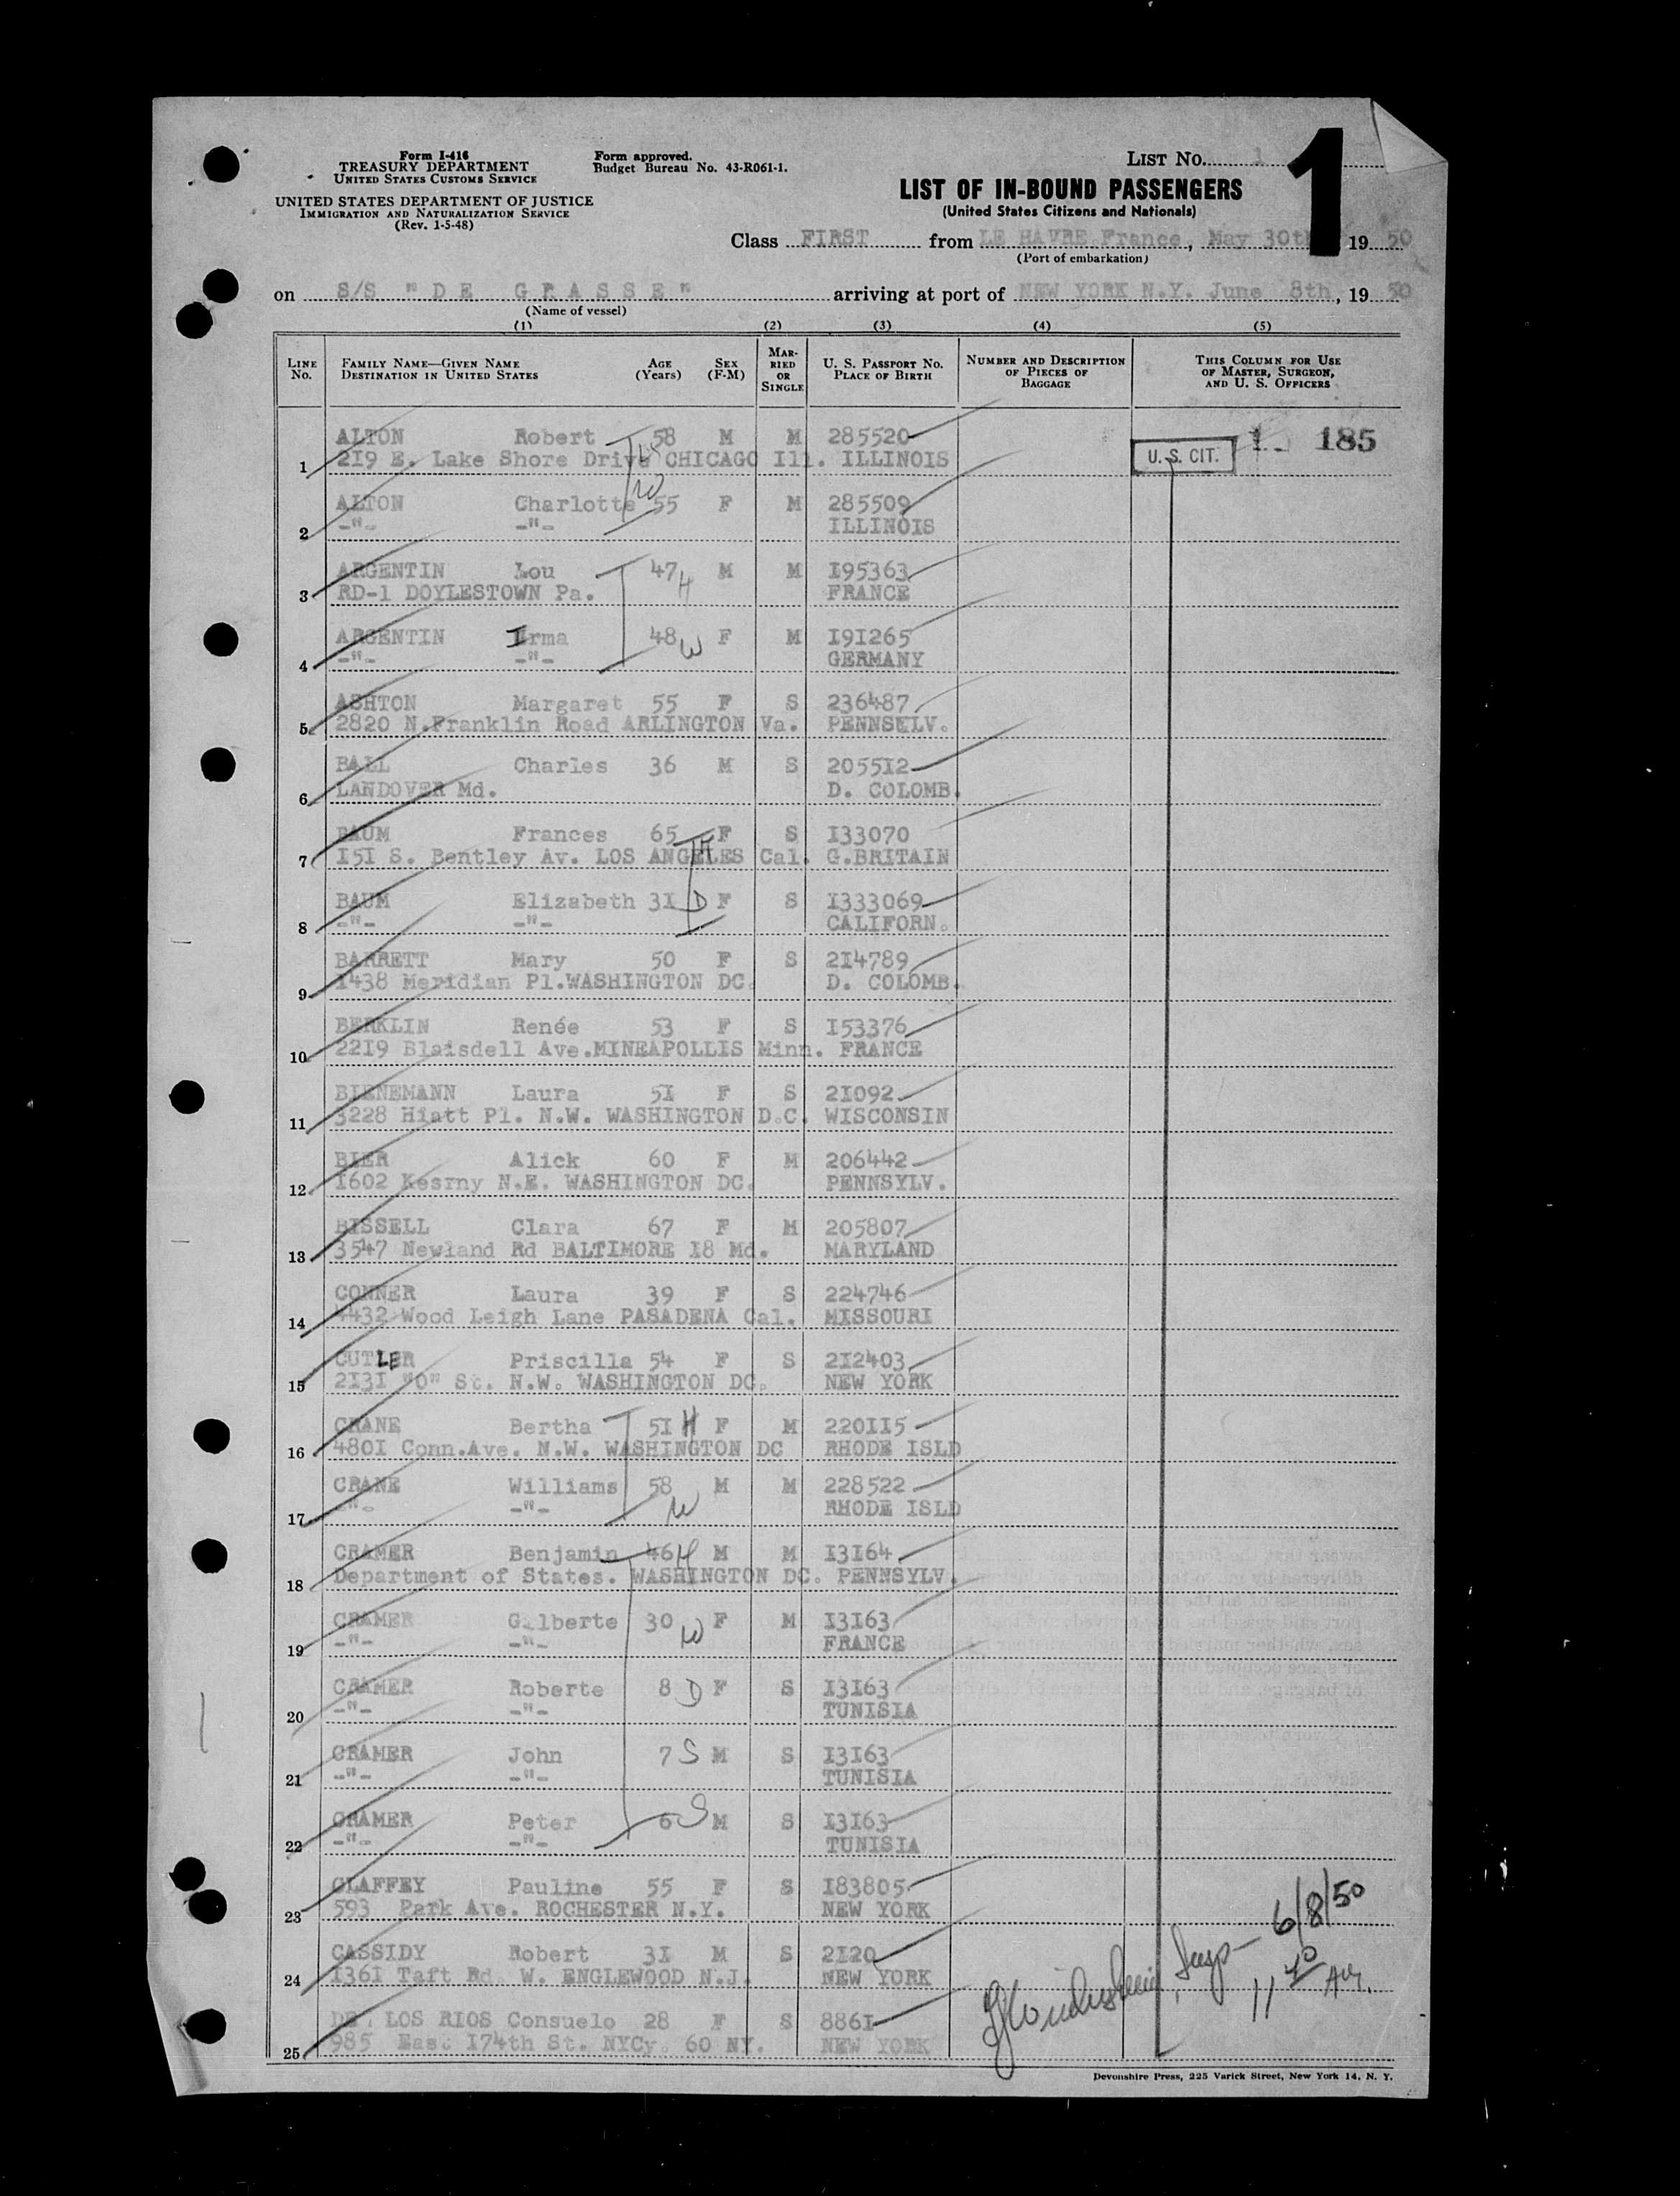 Form I-416
TREASURY DEPARTMENT
UNITED STATES CUSTOMS SERVICE
UNITED STATES DEPARTMENT OF JUSTICE
IMMIGRATION AND NATURALIZATION SERVICE
(Rev. 1-5-48)
Form approved.
Budget Bureau No. 43-R061-1.
LIST No. 1
1
LIST OF IN-BOUND PASSENGERS
(United States Citizens and Nationals)
Class FIRST from LE HAVRE France, May 30th 19 50
(Port of embarkation)
on S/S "DE GRASSE" arriving at port of NEW YORK N.Y. June 8th, 19 50
(Name of vessel)
(1) (2) (3) (4) (5)
LINE No. FAMILY NAME—GIVEN NAME DESTINATION IN UNITED STATES AGE (Years) SEX (F-M) MARRIED OR SINGLE U. S. PASSPORT No. PLACE OF BIRTH NUMBER AND DESCRIPTION OF PIECES OF BAGGAGE THIS COLUMN FOR USE OF MASTER, SURGEON, AND U. S. OFFICERS
ALTON Robert 58 M M 285520
1 219 E. Lake Shore Drive CHICAGO Ill. ILLINOIS U. S. CIT. 1 185
W
ALTON Charlotte 55 F M 285509
2 -"- -"- ILLINOIS
ARGENTIN Lou 47 H M M I95363
3 RD-1 DOYLESTOWN Pa. FRANCE
ARGENTIN Irma 48 W F M I9I265
4 -"- -"- GERMANY
ASHTON Margaret 55 F S 236487
5 2820 N.Franklin Road ARLINGTON Va. PENNSELV.
BALL Charles 36 M S 2055I2
6 LANDOVER Md. D. COLOMB.
BAUM Frances 65 F S I33070
7 I5I S. Bentley Av. LOS ANGELES Cal. G.BRITAIN
BAUM Elizabeth 3I D F S I333069
8 -"- -"- CALIFORN.
BARRETT Mary 50 F S 2I4789
9 I438 Meridian Pl.WASHINGTON DC. D. COLOMB.
BERKLIN Renée 53 F S I53376
10 22I9 Blaisdell Ave.MINEAPOLLIS Minn. FRANCE
BIENEMANN Laura 5I F S 2I092
11 3228 Hiatt Pl. N.W. WASHINGTON D.C. WISCONSIN
BIER Alick 60 F M 206442
12 I602 Kesrny N.E. WASHINGTON DC. PENNSYLV.
BISSELL Clara 67 F M 205807
13 3547 Newland Rd BALTIMORE I8 Md. MARYLAND
CONNER Laura 39 F S 224746
14 4432 Wood Leigh Lane PASADENA Cal. MISSOURI
CUTLER Priscilla 54 F S 2I2403
15 2I3I "O" St. N.W. WASHINGTON DC. NEW YORK
CRANE Bertha 5I H F M 220II5
16 480I Conn.Ave. N.W. WASHINGTON DC RHODE ISLD
CRANE Williams 58 M M 228522
17 -"- -"- W RHODE ISLD
CRAMER Benjamin 46 H M M I3I64
18 Department of States. WASHINGTON DC. PENNSYLV.
CRAMER Gilberte 30 W F M I3I63
19 -"- -"- FRANCE
CRAMER Roberte 8 D F S I3I63
20 -"- -"- TUNISIA
CRAMER John 7 S M S I3I63
21 -"- -"- TUNISIA
CRAMER Peter 6 S M S I3I63
22 -"- -"- TUNISIA
CLAFFEY Pauline 55 F S I83805
23 593 Park Ave. ROCHESTER N.Y. NEW YORK
6/8/50
CASSIDY Robert 3I M S 2I20
24 I36I Taft Rd W. ENGLEWOOD N.J. NEW YORK
Insp
11 40 AM.
DE LOS RIOS Consuelo 28 F S 886I
25 985 East I74th St. NYCy. 60 NY. NEW YORK
Devonshire Press, 225 Varick Street, New York 14, N. Y.